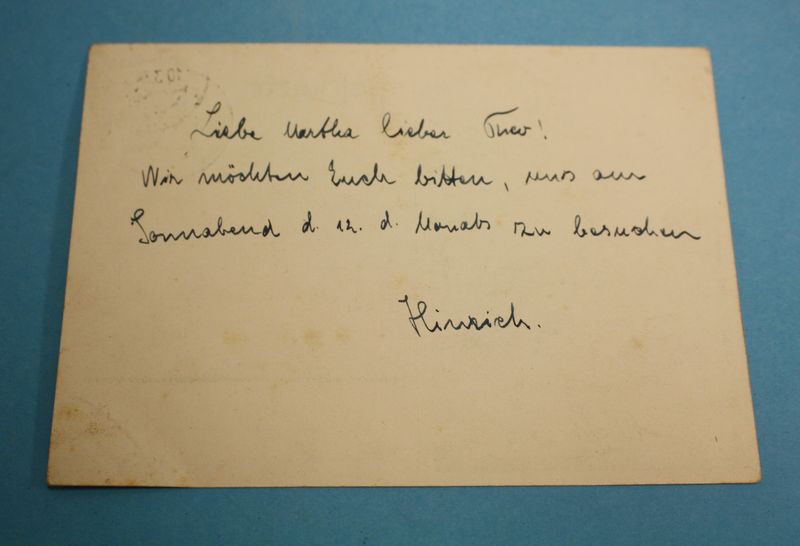 Liebe Martha lieber Theo!
Wir möchten Euch bitten, uns am
Sonnabend d. 12. d. Monats zu besuchen
Hinrich.